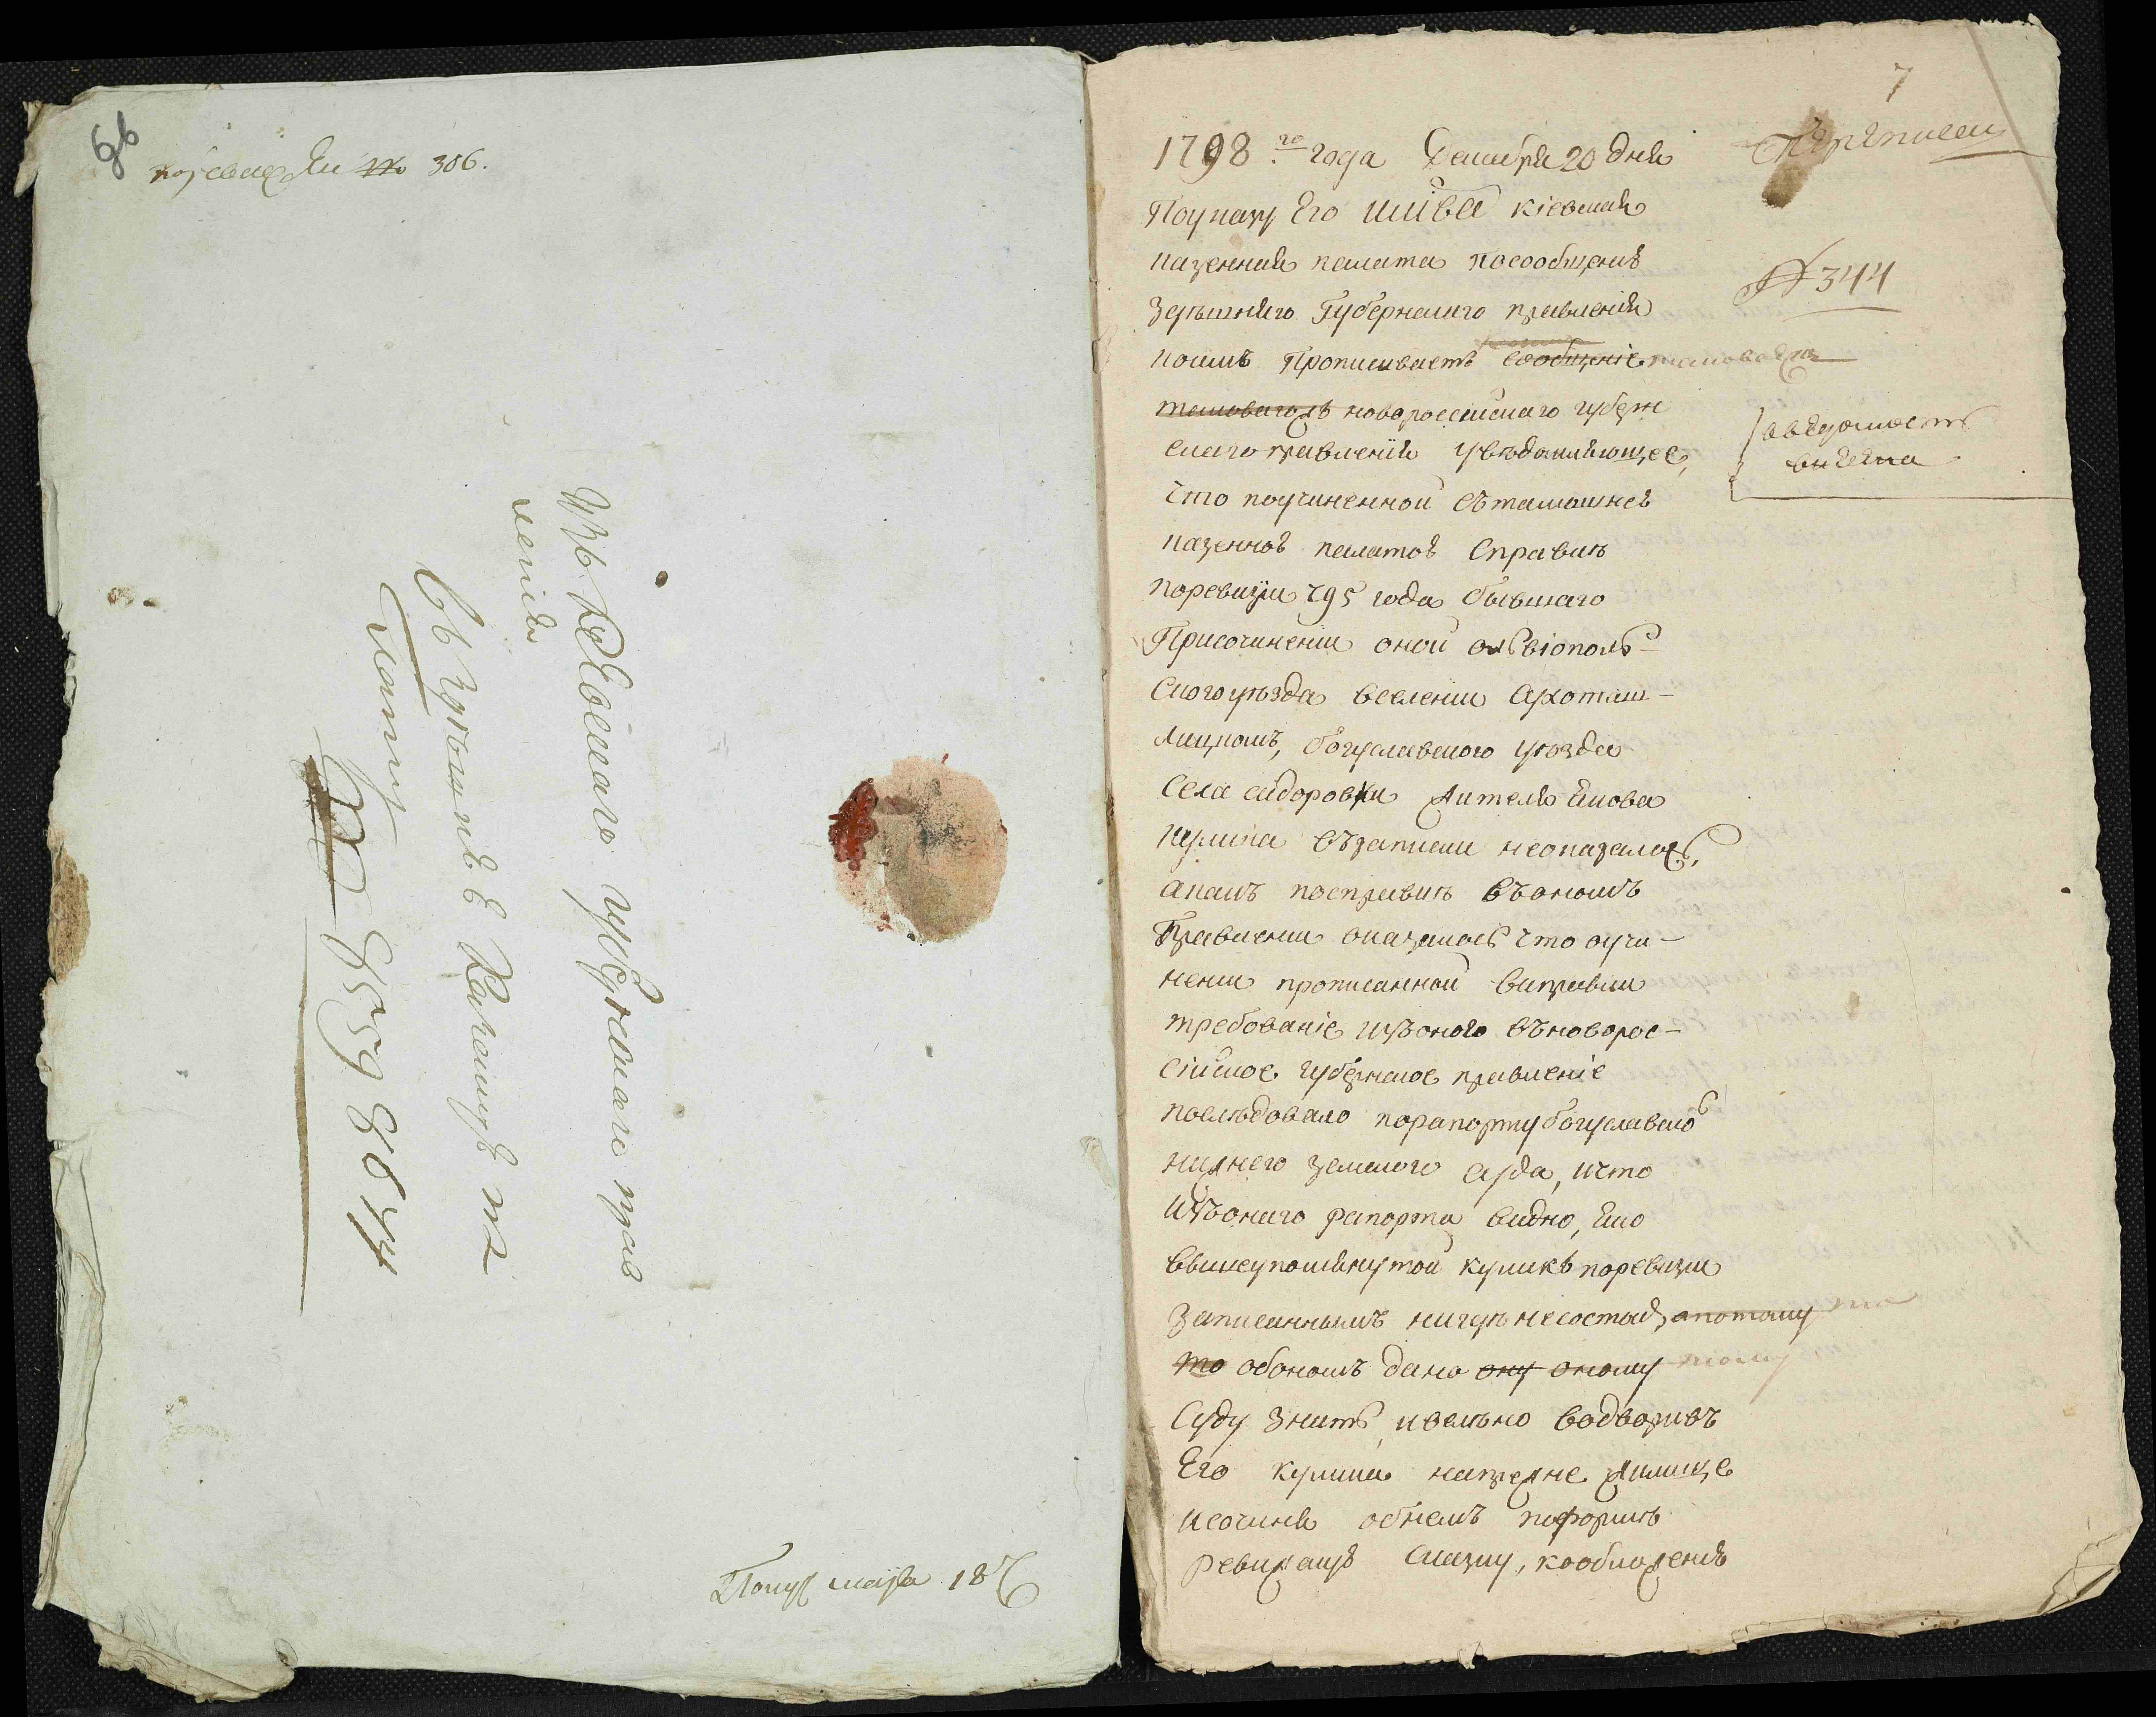 6в
по ревизіи № 306.
Изъ Кіевскаго губернскаго прав
ленія
Въ здѣшнюю Казенную па
лату
№ 6559 8844
Получ маія 18
7
1798го года Декабря 20 дня
Поуказу Его ИМПВА кіевская
казенная палата посообщенію
здѣшняго Губернскаго правленія
коимъ Прописываетъ сообщеніе таковаежъ
таковагожъ новороссійскаго губерн
скаго правленія увѣдомляющее,
что поучиненной съ тамошнею
казенною палатою Справки
поревизіи 795 года бывшаго
Присочиненіи оной ольвіополь-
Скогоуѣзда вселеніи Сухоташ-
лицкомъ, богуславского уѣзда
Села сидоровки жителя Якова
кулика въ записки неоказалось,
акакъ посправки въономъ
Правленіи оказалось что оучи-
неніи прописанной выправки
требованіе изъоного въноворос-
сійское губернское правленіе
послѣдовало порапорту богуславско
нижнего земского суда, ичто
изъонаго рапорта видно, яко
вышеупомянутой куликъ поревизіи
записаннымъ нигдѣ несостоя, апотому
то обономъ дано ону оному тому
Суду знать, ивелѣно водворивъ
Его кулика напрежне жилище
исочиня обнемъ поформѣ
ревизскую Сказку, кообложенію
№ 344
вѣдомость
внесена